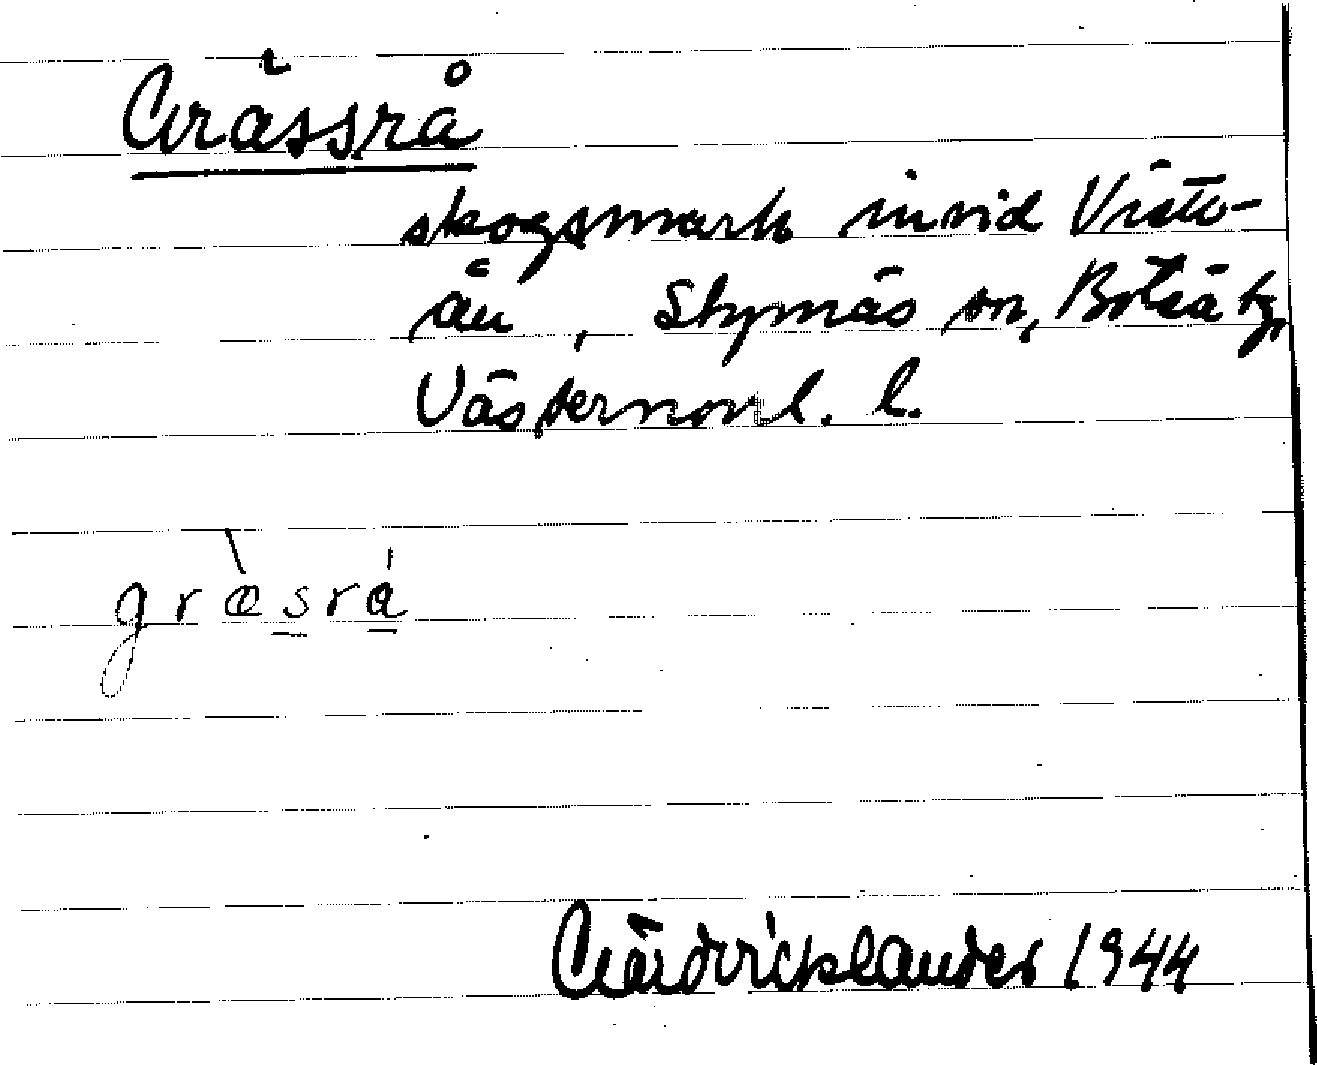 Grässrå
skogsmark invid Vistö-
ån, Skymäs sn, Boteå tg,
Västernorrl. l.
græ̀srǻ
Gärdvicklander 1944